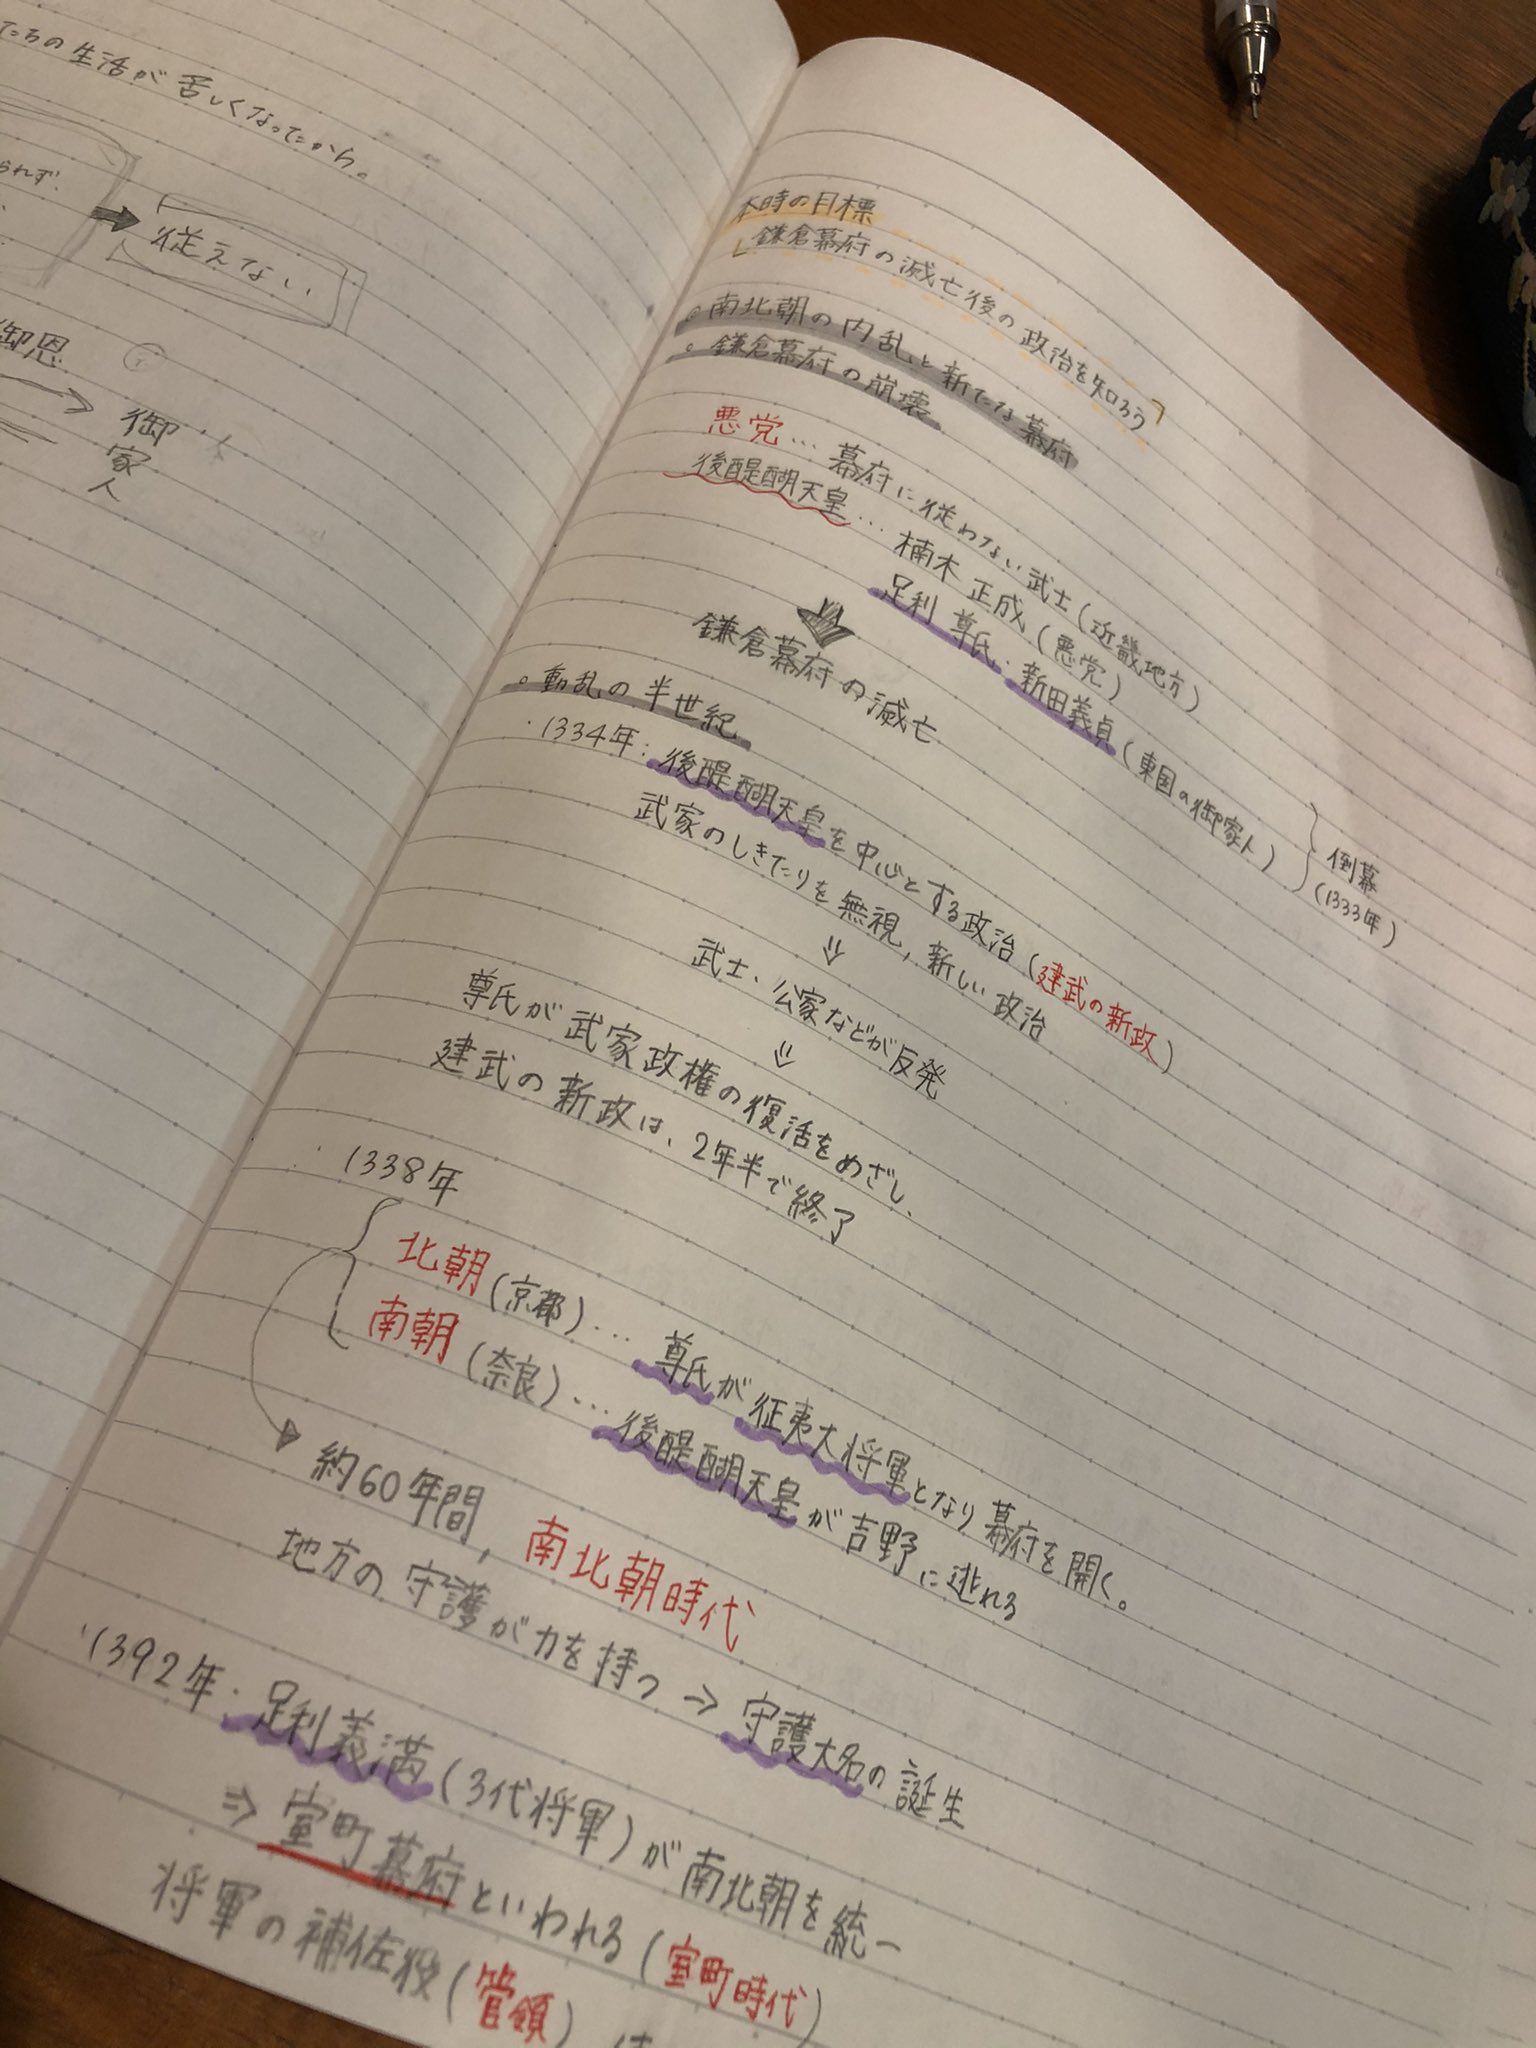 たちの生活が苦しくなったから。
られず、
従えない
御恩
御家人
本時の目標
「鎌倉幕府の滅亡後の政治を知ろう」
◎南北朝の内乱と新たな幕府
○鎌倉幕府の崩壊
悪党…幕府に従わない武士(近畿地方)
後醍醐天皇…楠木正成(悪党)
足利尊氏・新田義貞(東国の御家人)
倒幕
(1333年)
鎌倉幕府の滅亡
○動乱の半世紀
・1334年:後醍醐天皇を中心とする政治(建武の新政)
武家のしきたりを無視,新しい政治
⇓
武士、公家などが反発
⇓
尊氏が武家政権の復活をめざし、
建武の新政は、2年半で終了
・1338年
北朝(京都)…尊氏が征夷大将軍となり幕府を開く。
南朝(奈良)…後醍醐天皇が吉野に逃れる
約60年間,南北朝時代
地方の守護が力を持つ⇒守護大名の誕生
・1392年・足利義満(3代将軍)が南北朝を統一
⇒室町幕府といわれる(室町時代)
将軍の補佐役(管領)